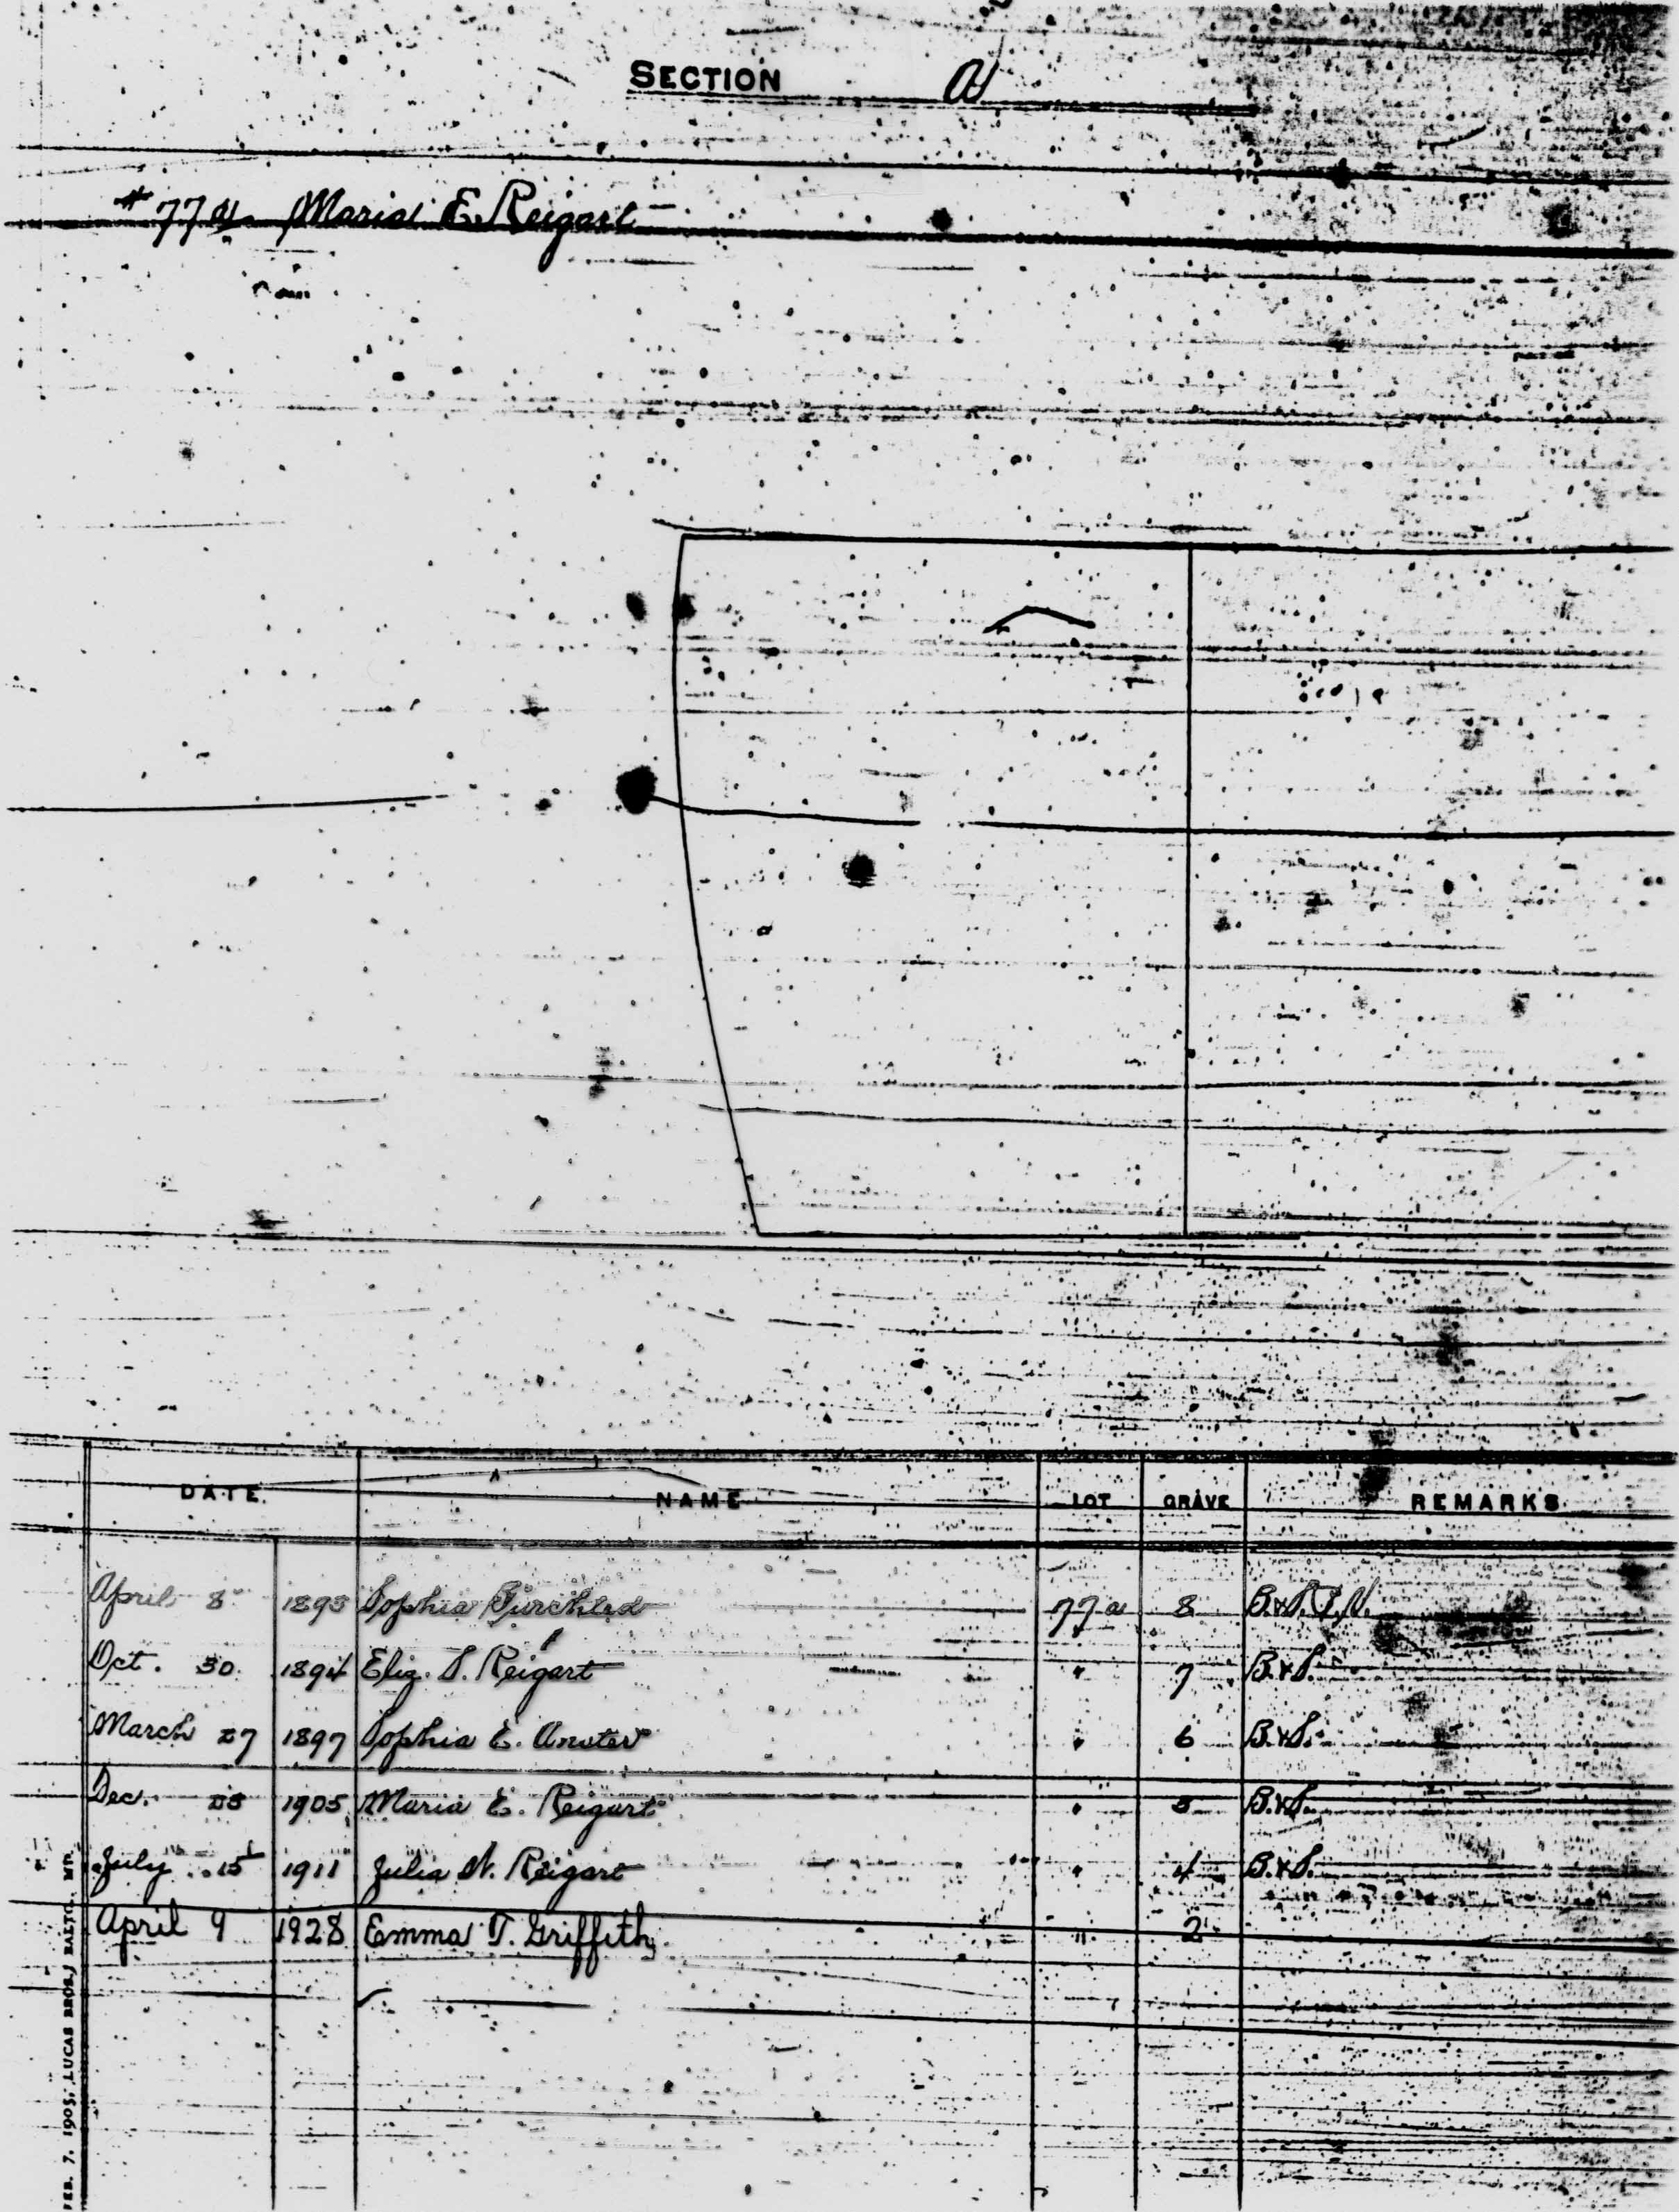 SECTION A
#77a Maria E. Reigart
DATE NAME LOT GRAVE REMARKS
April 8 1893 Sophia 77a 8 B.&S.
Oct. 30 1894 Eliz. S. Reigart " 7 B.&S.
March 27 1897 Sophia E. " 6 B.&S.
Dec. 1905 Maria E. Reigart " B.&S.
July 15 1911 Julia N. Reigart " 4 B.&S.
April 9 1928 Emma T. Griffith " 2
FEB. 7. 1905, LUCAS BROS., BALTO. MD.